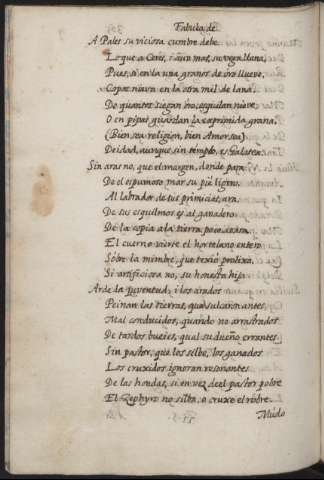 Fabula de
A Pales su viciosa cumbre debe
Lo que a Ceres, i aun mas, su vega llana,
Pues, si en la una granos de oro llueve,
Copos nieva en la otra mil de lana.
De quantos siegan oro, esquilan nieve,
O en pipas guardan la exprimida grana,
(Bien sea religion, bien Amor sea)
Deidad, aunque sin templo, es Galatea.
Sin aras no, que el margen, donde para
De el espumoso mar su pie ligero,
Al labrador de sus primicias, ara,
De sus esquilmos es al ganadero.
De la copia a la tierra poco avara
El cuerno vierte el hortelano entero
Sobre la mimbre, que texiò prolixa,
Si artificiosa no, su honesta hija.
Arde la Iuventud, i los arados
Peinan las tierras, que surcaron antes,
Mal conducidos, quando no arrastrados
De tardos bueies, qual su dueño errantes.
Sin pastor, que los silbe, los ganados
Los cruxidos ignoran resonantes
De las hondas, si en vez de el pastor pobre
El Zephyro no silba, o cruxe el robre.
Mudo